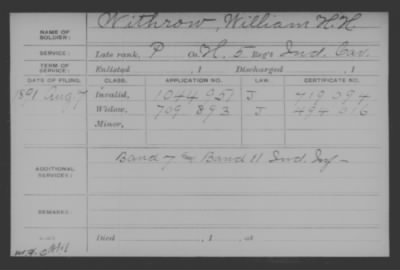 NAME OF SOLDIER: Withrow, William H. H.
SERVICE: Late rank, P Co. H, 5 Reg't Ind. Cav.
TERM OF SERVICE: Enlisted , 1 Discharged , 1
DATE OF FILING. CLASS. APPLICATION NO. LAW. CERTIFICATE NO.
1891 Aug 7 Invalid, 1044 051 J 719 094
Widow, 709 893 J 494 016
Minor,
ADDITIONAL SERVICES: Band 11 Ind. Inf
REMARKS:
Died , 1 , at